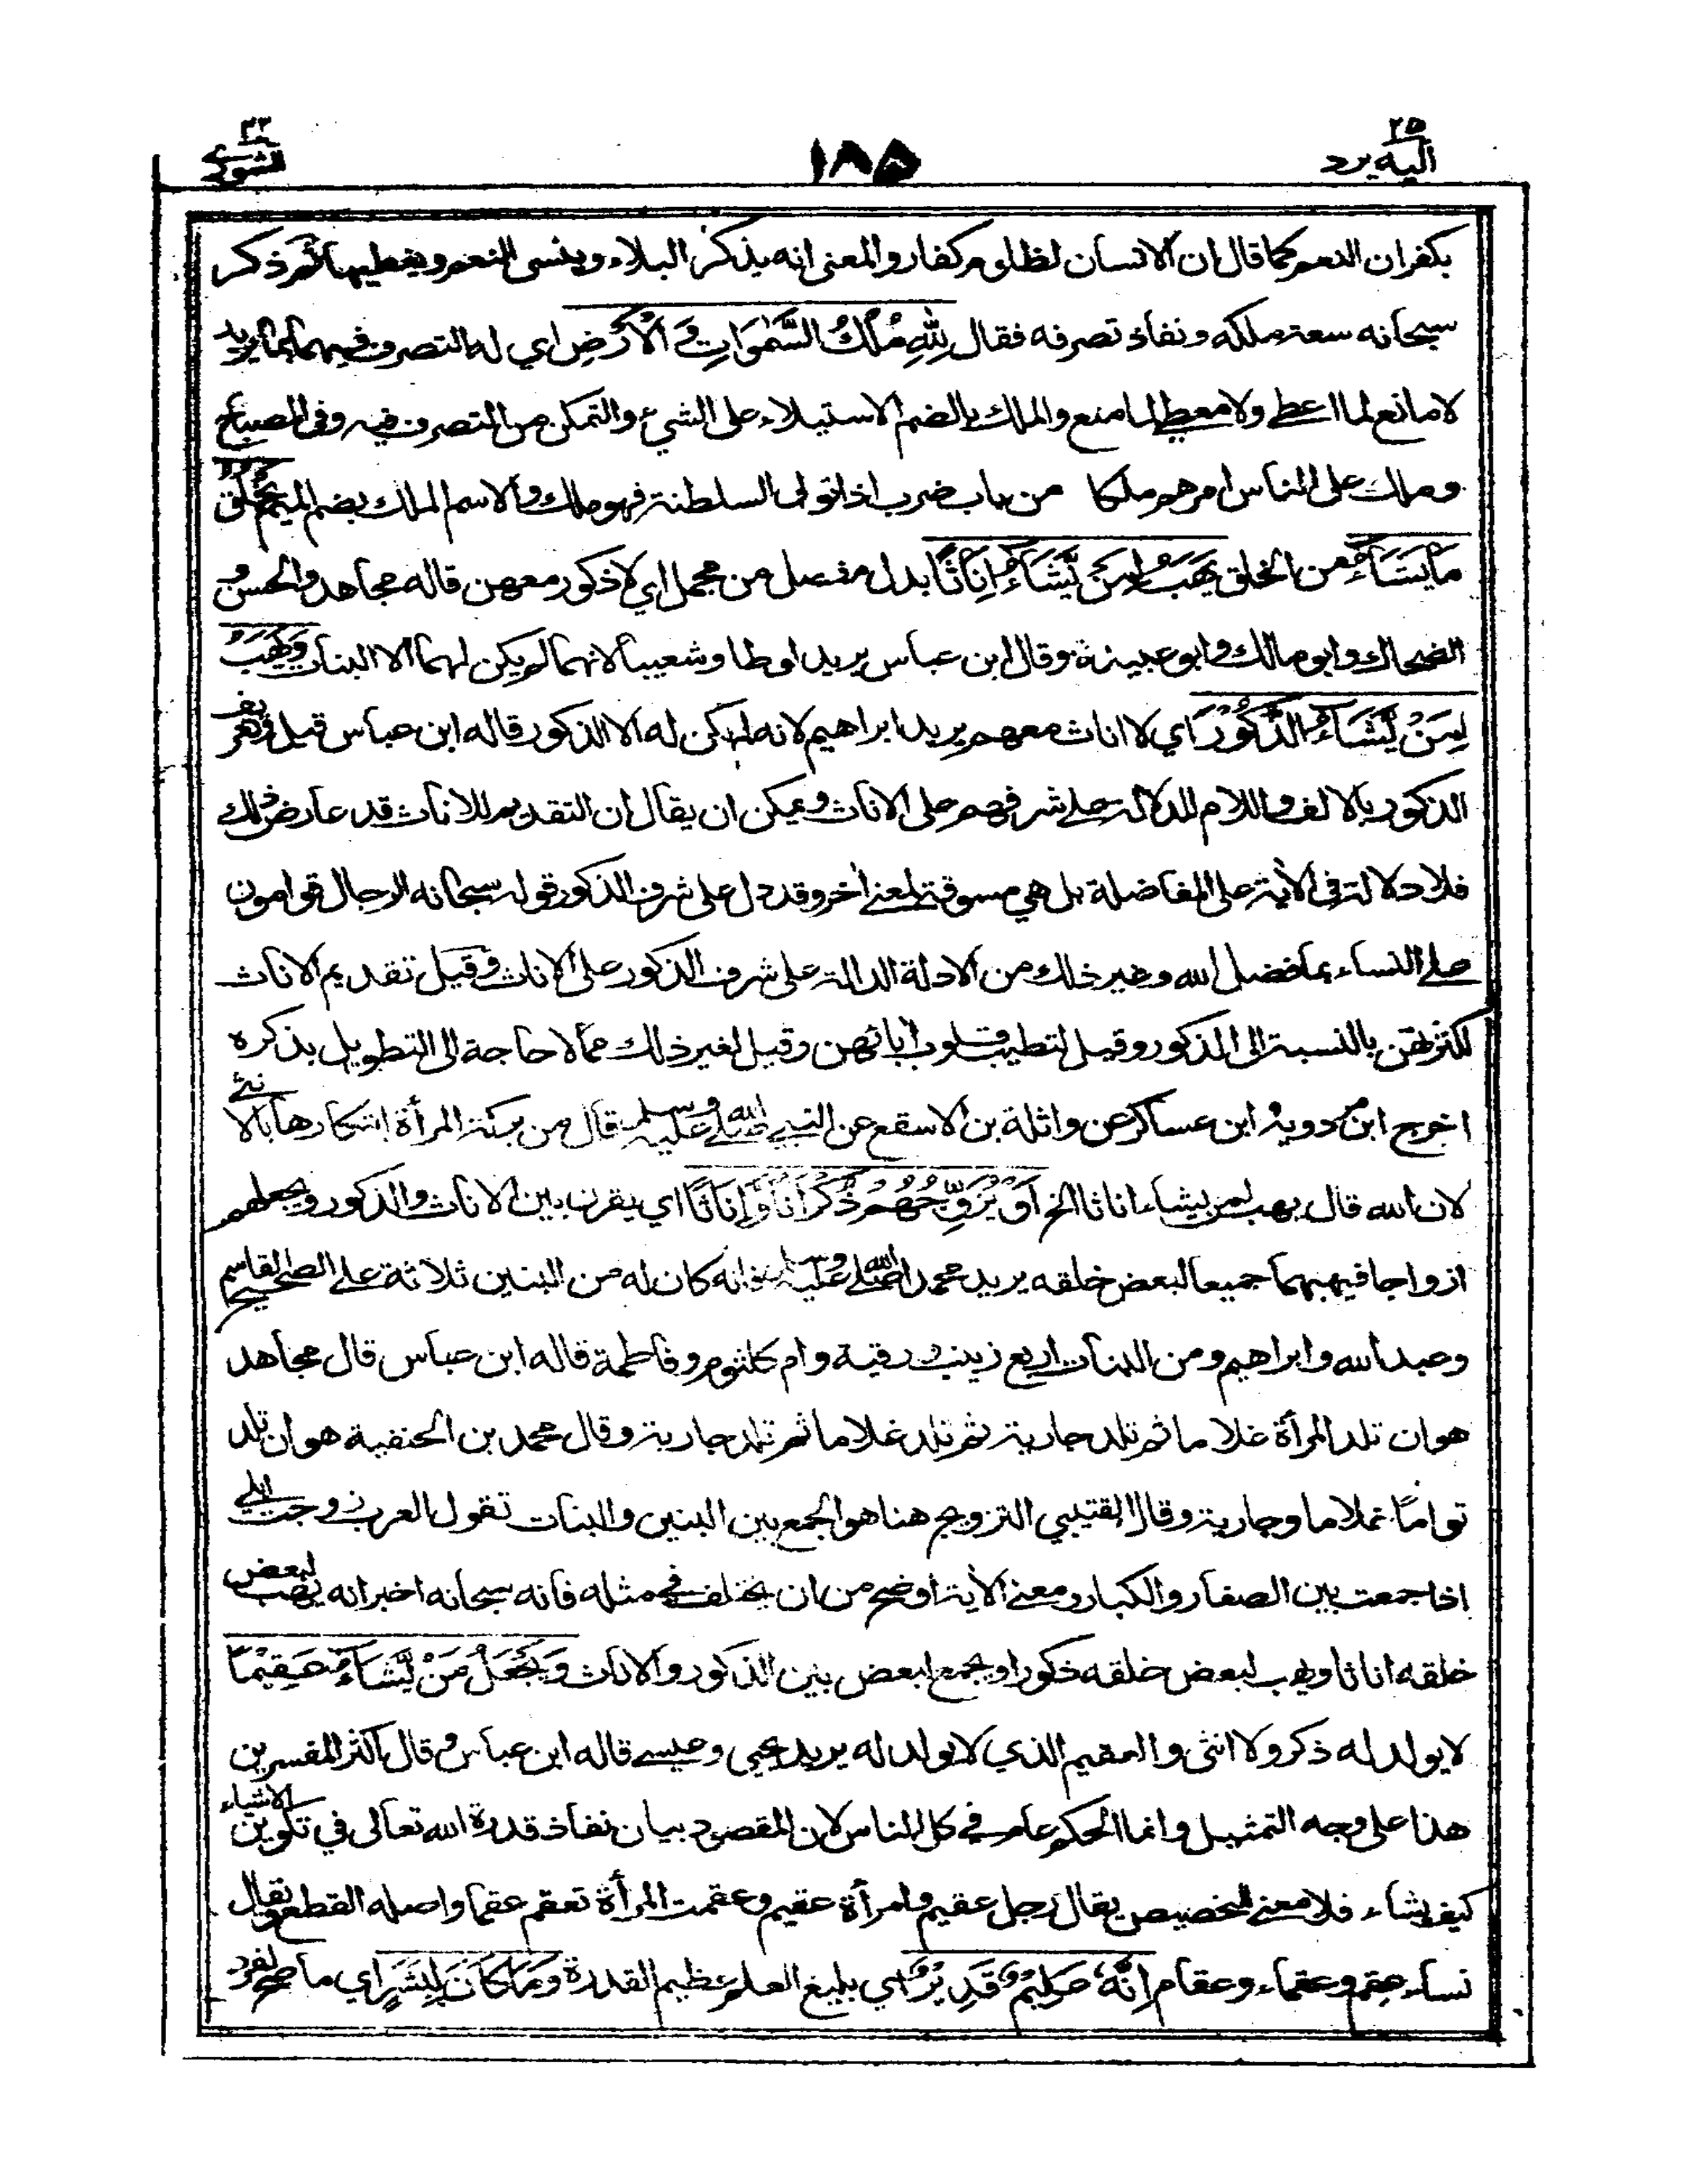 ٢٥
اليه يرد
١٨٥
٤٢
الشورى
بكفران النعم كما قال ان الانسان لظلوم كفار والمعنى انه يذكر البلاء وينسى النعم ويغطيها ثم ذكر
سبحانه سعة ملكه ونفاذ تصرفه فقال لِلّٰهِ مُلْكُ السَّمٰوَاتِ وَ الْاَرْضِ اي له التصرف فيهما بما يريد
لا مانع لما اعطى ولا معطي لما منع والملك بالضم الاستيلاء على الشيء والتمكن من التصرف فيه وفى المصباح
وملك على الناس امرهم ملكا من باب ضرب اذا تولى السلطنة فهو ملك والاسم الملك بضم الميم يَخْلُقُ
مَا يَشَآءُ من الخلق يَهَبُ لِمَنْ يَّشَآءُ اِنَاثًا بدل مفصل من مجمل اي لا ذكور معهن قاله مجاهد والحسن و
الضحاك وابو مالك وابو عبيدة وقال ابن عباس يريد لوطا وشعيبا لانهما لم يكن لهما الا البنات وَيَهَبُ
لِمَنْ يَّشَآءُ الذُّكُوْرَ اي لا اناث معهم يريد ابراهيم لانه لم يكن له الا الذكور قاله ابن عباس قيل وتعريف
الذكور بالالف واللام للدلالة على شرفهم على الاناث ويمكن ان يقال ان التقديم للاناث قد عارض ذلك
فلا دلالة فى الأية على المفاضلة بل هي مسوقة لمعنى أخر وقد دل على شرف الذكور قوله سبحانه الرجال قوامون
على النساء بما فضل الله وغير ذلك من الادلة الدالة على شرف الذكور على الاناث وقيل تقديم الاناث
لكثرتهن بالنسبة الى الذكور وقيل لتطييب قلوب أبائهن وقيل لغير ذلك مما لا حاجة الى التطويل بذكره
اخرج ابن مردويه وابن عساكر عن واثلة بن الاسقع عن النبي صلى الله عليه وسلم قال من بركة المرأة ابتكارها بالانثى
لان الله قال يهب لمن يشاء اناثا الخ اَوْ يُزَوِّجُهُمْ ذُكْرَانًا وَّاِنَاثًا اي يقرن بين الاناث والذكور ويجعلهم
ازواجا فيهبهما جميعا لبعض خلقه يريد محمدا صلى الله عليه وسلم فانه كان له من البنين ثلاثة على الصحيح القاسم
وعبد الله وابراهيم ومن البنات اربع زينب ورقية وام كلثوم وفاطمة قاله ابن عباس قال مجاهد
هو ان تلد المرأة غلاما ثم تلد جارية ثم تلد غلاما ثم تلد جارية وقال محمد بن الحنفية هو ان تلد
تواما غلاما وجارية وقال القتيبي التزويج هنا هو الجمع بين البنين والبنات تقول العرب زوجت ابلي
اذا جمعت بين الصغار والكبار ومعنى الأية اوضح من ان يختلف في مثله فانه سبحانه اخبر انه يهب لبعض
خلقه اناثا ويهب لبعض خلقه ذكورا ويجمع لبعض بين الذكور والاناث وَيَجْعَلُ مَنْ يَّشَآءُ عَقِيْمًا
لا يولد له ذكر ولا انثى والعقيم الذي لا يولد له يريد يحيى وعيسى قاله ابن عباس وقال اكثر المفسرين
هذا على وجه التمثيل وانما الحكم عام في كل الناس لان المقصود بيان نفاذ قدرة الله تعالى في تكوين الاشياء
كيف يشاء فلا معنى للتخصيص يقال رجل عقيم وامرأة عقيم وعقمت المرأة تعقم عقما واصله القطع ويقال
نساء عقم وعقماء وعقام اِنَّهٗ عَلِيْمٌ قَدِيْرٌ اي بليغ العلم عظيم القدرة وَمَا كَانَ لِبَشَرٍ اي ما صح لفرد